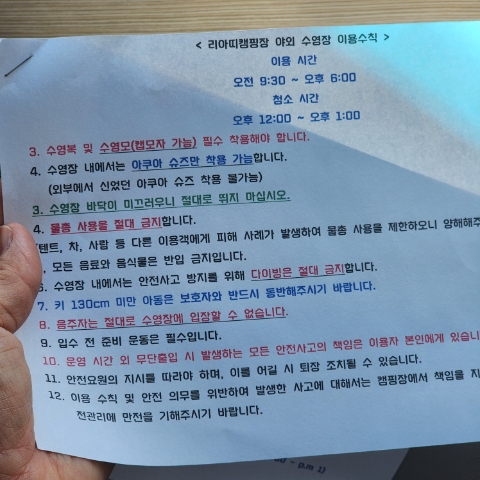 < 리아띠캠핑장 야외 수영장 이용수칙 >
이용 시간
오전 9:30 ~ 오후 6:00
청소 시간
오후 12:00 ~ 오후 1:00
3. 수영복 및 수영모(캡모자 가능) 필수 착용해야 합니다.
4. 수영장 내에서는 아쿠아 슈즈만 착용 가능합니다.
(외부에서 신었던 아쿠아 슈즈 착용 불가능)
3. 수영장 바닥이 미끄러우니 절대로 뛰지 마십시오.
4. 물총 사용을 절대 금지합니다.
텐트, 차, 사람 등 다른 이용객에게 피해 사례가 발생하여 물총 사용을 제한하오니 양해해주
모든 음료와 음식물은 반입 금지입니다.
6. 수영장 내에서는 안전사고 방지를 위해 다이빙은 절대 금지합니다.
7. 키 130cm 미만 아동은 보호자와 반드시 동반해주시기 바랍니다.
8. 음주자는 절대로 수영장에 입장할 수 없습니다.
9. 입수 전 준비 운동은 필수입니다.
10. 운영 시간 외 무단출입 시 발생하는 모든 안전사고의 책임은 이용자 본인에게 있습니
11. 안전요원의 지시를 따라야 하며, 이를 어길 시 퇴장 조치될 수 있습니다.
12. 이용 수칙 및 안전 의무를 위반하여 발생한 사고에 대해서는 캠핑장에서 책임을 지
전관리에 만전을 기해주시기 바랍니다.
~ p.m 1)